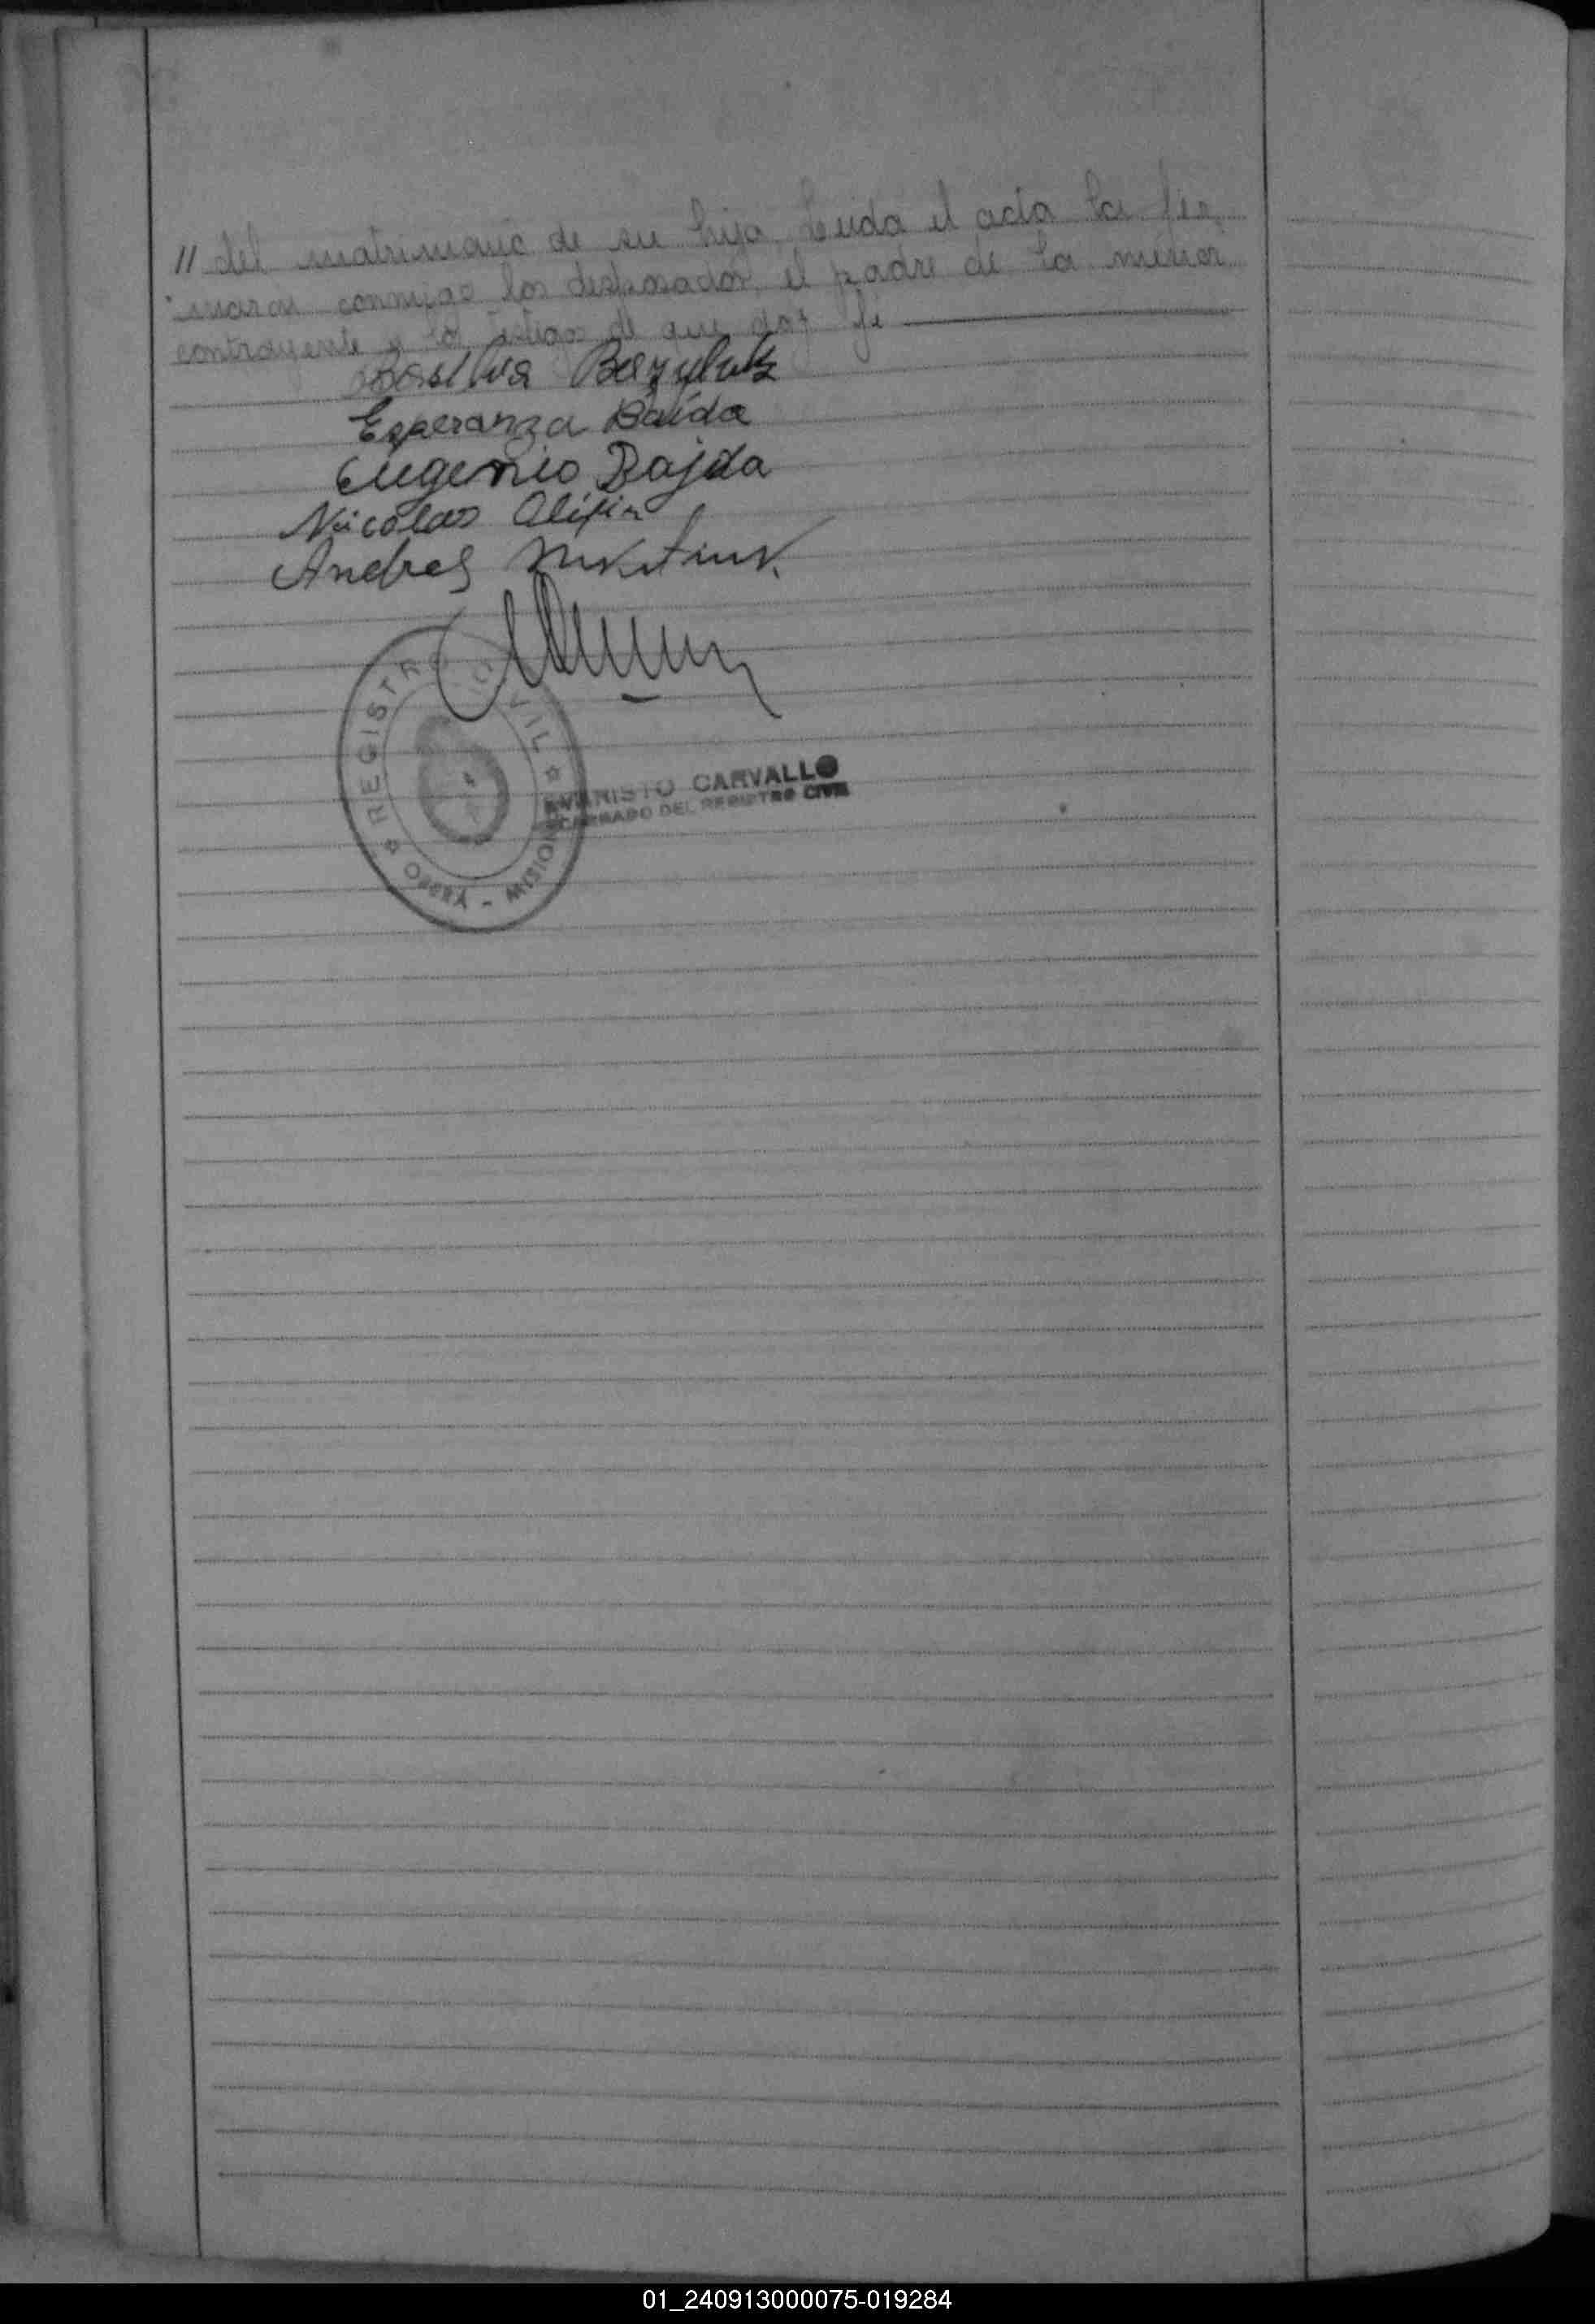 // del matrimonio de su hija. Leida el acta la fir
maron conmigo los desposados, el padre de la menor
contrayente y los testigos de que doy fé
Bazyluk
Esperanza Baida
Eugenio Bajda
Nicolas
Andres
REGISTRO CIVIL
MISIONES
EVARISTO CARVALLO
ENCARGADO DEL REGISTRO CIVIL
01_240913000075-019284